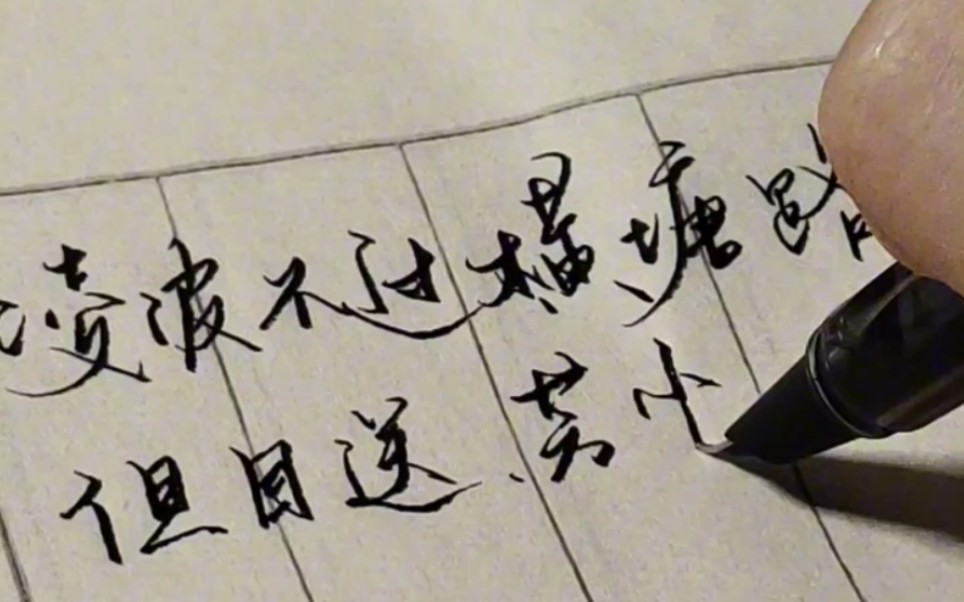 凌波不过横塘路
但目送、芳